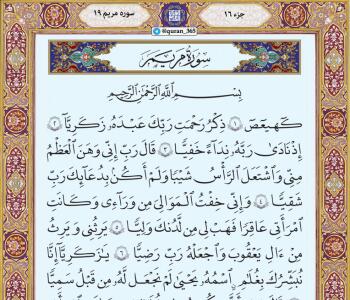 جزء ۱۶
@quran_365
سوره مریم ۱۹
سُورَةُ مَرْيَمَ
بِسْمِ اللَّهِ الرَّحْمَٰنِ الرَّحِيمِ
كٓهيعٓصٓ ١ ذِكْرُ رَحْمَتِ رَبِّكَ عَبْدَهُۥ زَكَرِيَّآ ٢
إِذْ نَادَىٰ رَبَّهُۥ نِدَآءً خَفِيًّا ٣ قَالَ رَبِّ إِنِّى وَهَنَ ٱلْعَظْمُ
مِنِّى وَٱشْتَعَلَ ٱلرَّأْسُ شَيْبًا وَلَمْ أَكُنۢ بِدُعَآئِكَ رَبِّ
شَقِيًّا ٤ وَإِنِّى خِفْتُ ٱلْمَوَٰلِىَ مِن وَرَآءِى وَكَانَتِ
ٱمْرَأَتِى عَاقِرًا فَهَبْ لِى مِن لَّدُنكَ وَلِيًّا ٥ يَرِثُنِى وَيَرِثُ
مِنْ ءَالِ يَعْقُوبَ وَٱجْعَلْهُ رَبِّ رَضِيًّا ٦ يَٰزَكَرِيَّآ إِنَّا
نُبَشِّرُكَ بِغُلَٰمٍ ٱسْمُهُۥ يَحْيَىٰ لَمْ نَجْعَل لَّهُۥ مِن قَبْلُ سَمِيًّا